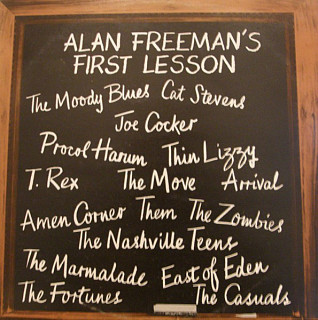 ALAN FREEMAN'S
FIRST LESSON
The Moody Blues Cat Stevens
Joe Cocker
Procol Harum Thin Lizzy
T. Rex The Move Arrival
Amen Corner Them The Zombies
The Nashville Teens
The Marmalade East of Eden
The Fortunes The Casuals